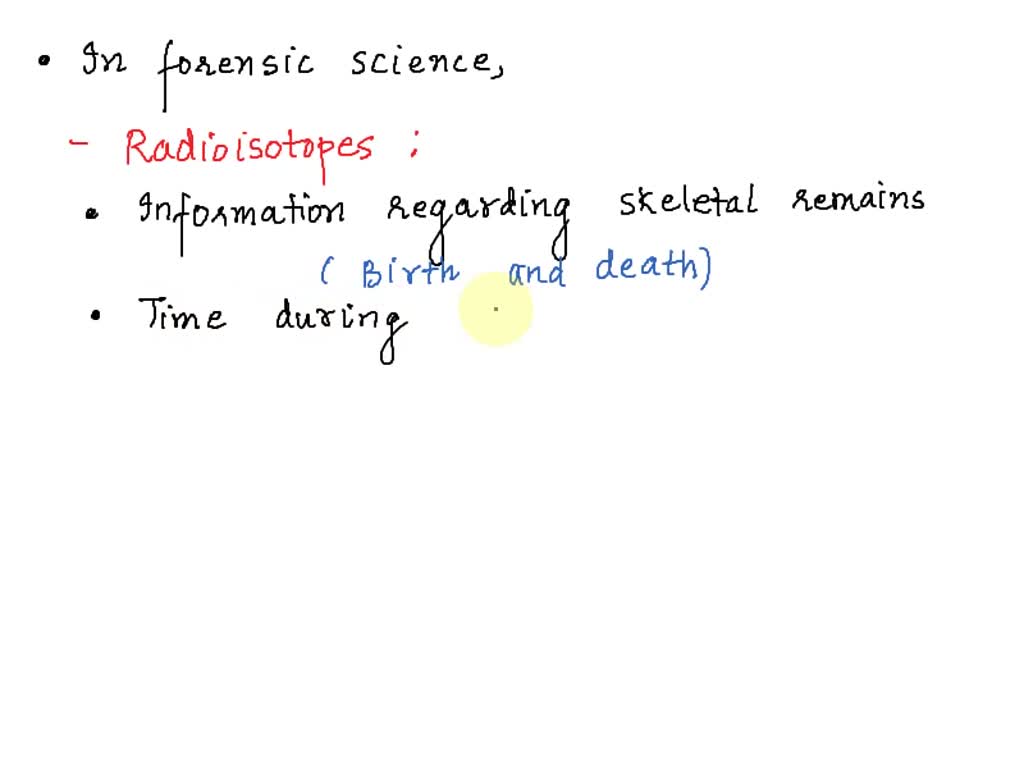 • In forensic science,
- Radioisotopes :
• Information regarding skeletal remains
( Birth and death)
• Time during